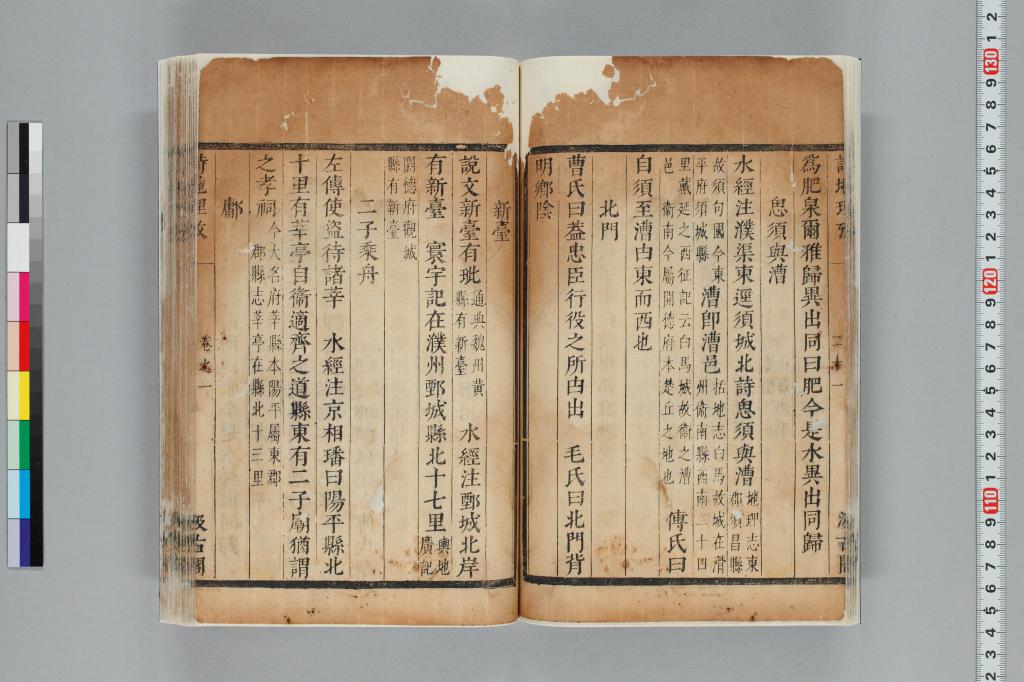 為肥泉爾雅歸異出同曰肥今是水異出同歸
思須與漕
水經注濮渠東逕須城北詩思須與漕地理志東郡須昌縣
故須句國今東平府須城縣漕卽漕邑括地志白馬故城在滑州衞南縣西南三十四
里戴延之西征記云白馬城故衞之漕邑 衞南今屬開德府本楚丘之地也 傅氏曰
自須至漕由東而西也
北門
曹氏曰蓋忠臣行役之所由出 毛氏曰北門背
明鄉陰
新臺
說文新臺有玼通典魏州黄縣有新臺 水經注鄄城北岸
有新臺 寰宇記在濮州鄄城縣北十七里輿地廣記
開德府觀城縣有新臺
二子乘舟
左傳使盜待諸莘 水經注京相璠曰陽平縣北
十里有莘亭自衞適齊之道縣東有二子廟猶謂
之孝祠今大名府莘縣本陽平屬東郡 郡縣志莘亭在縣北十三里
鄘
詩地里攷 卷之一 汲古閣